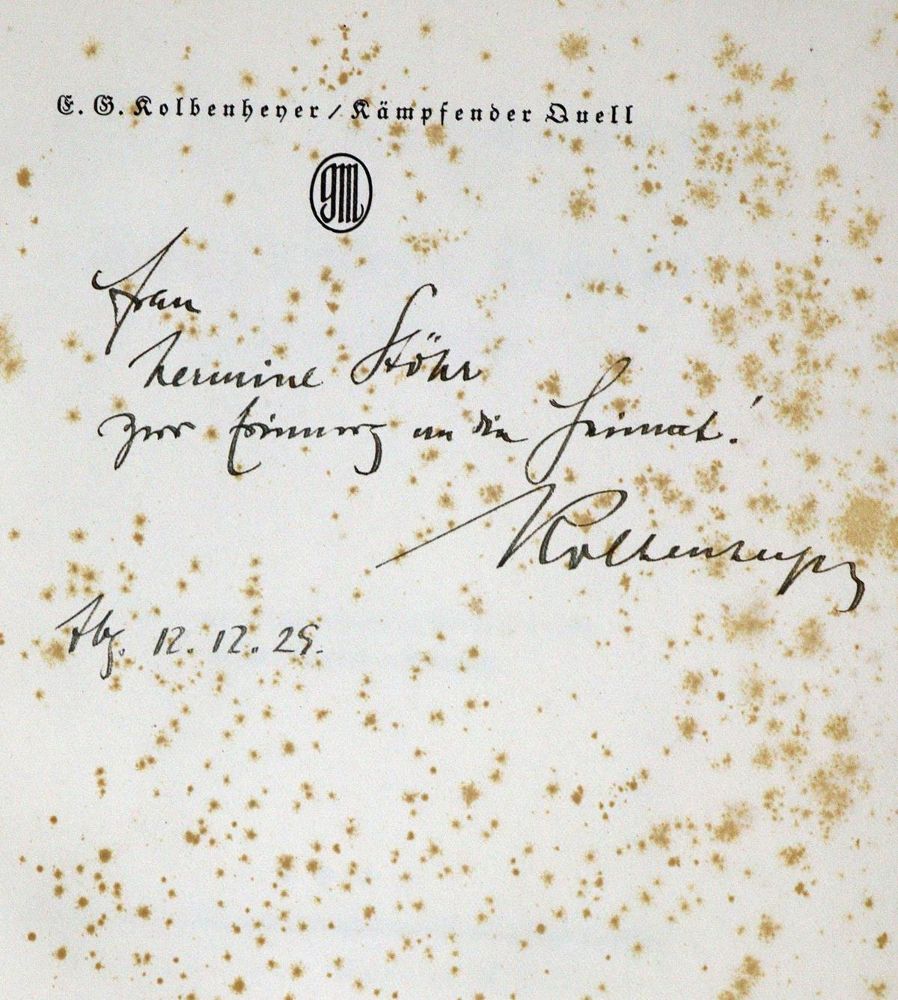 E. G. Kolbenheyer / Kämpfender Quell
GM
Frau
Hermine Stöhr
zur Erinnerung an die Heimat!
Kolbenheyer
12. 12. 29.